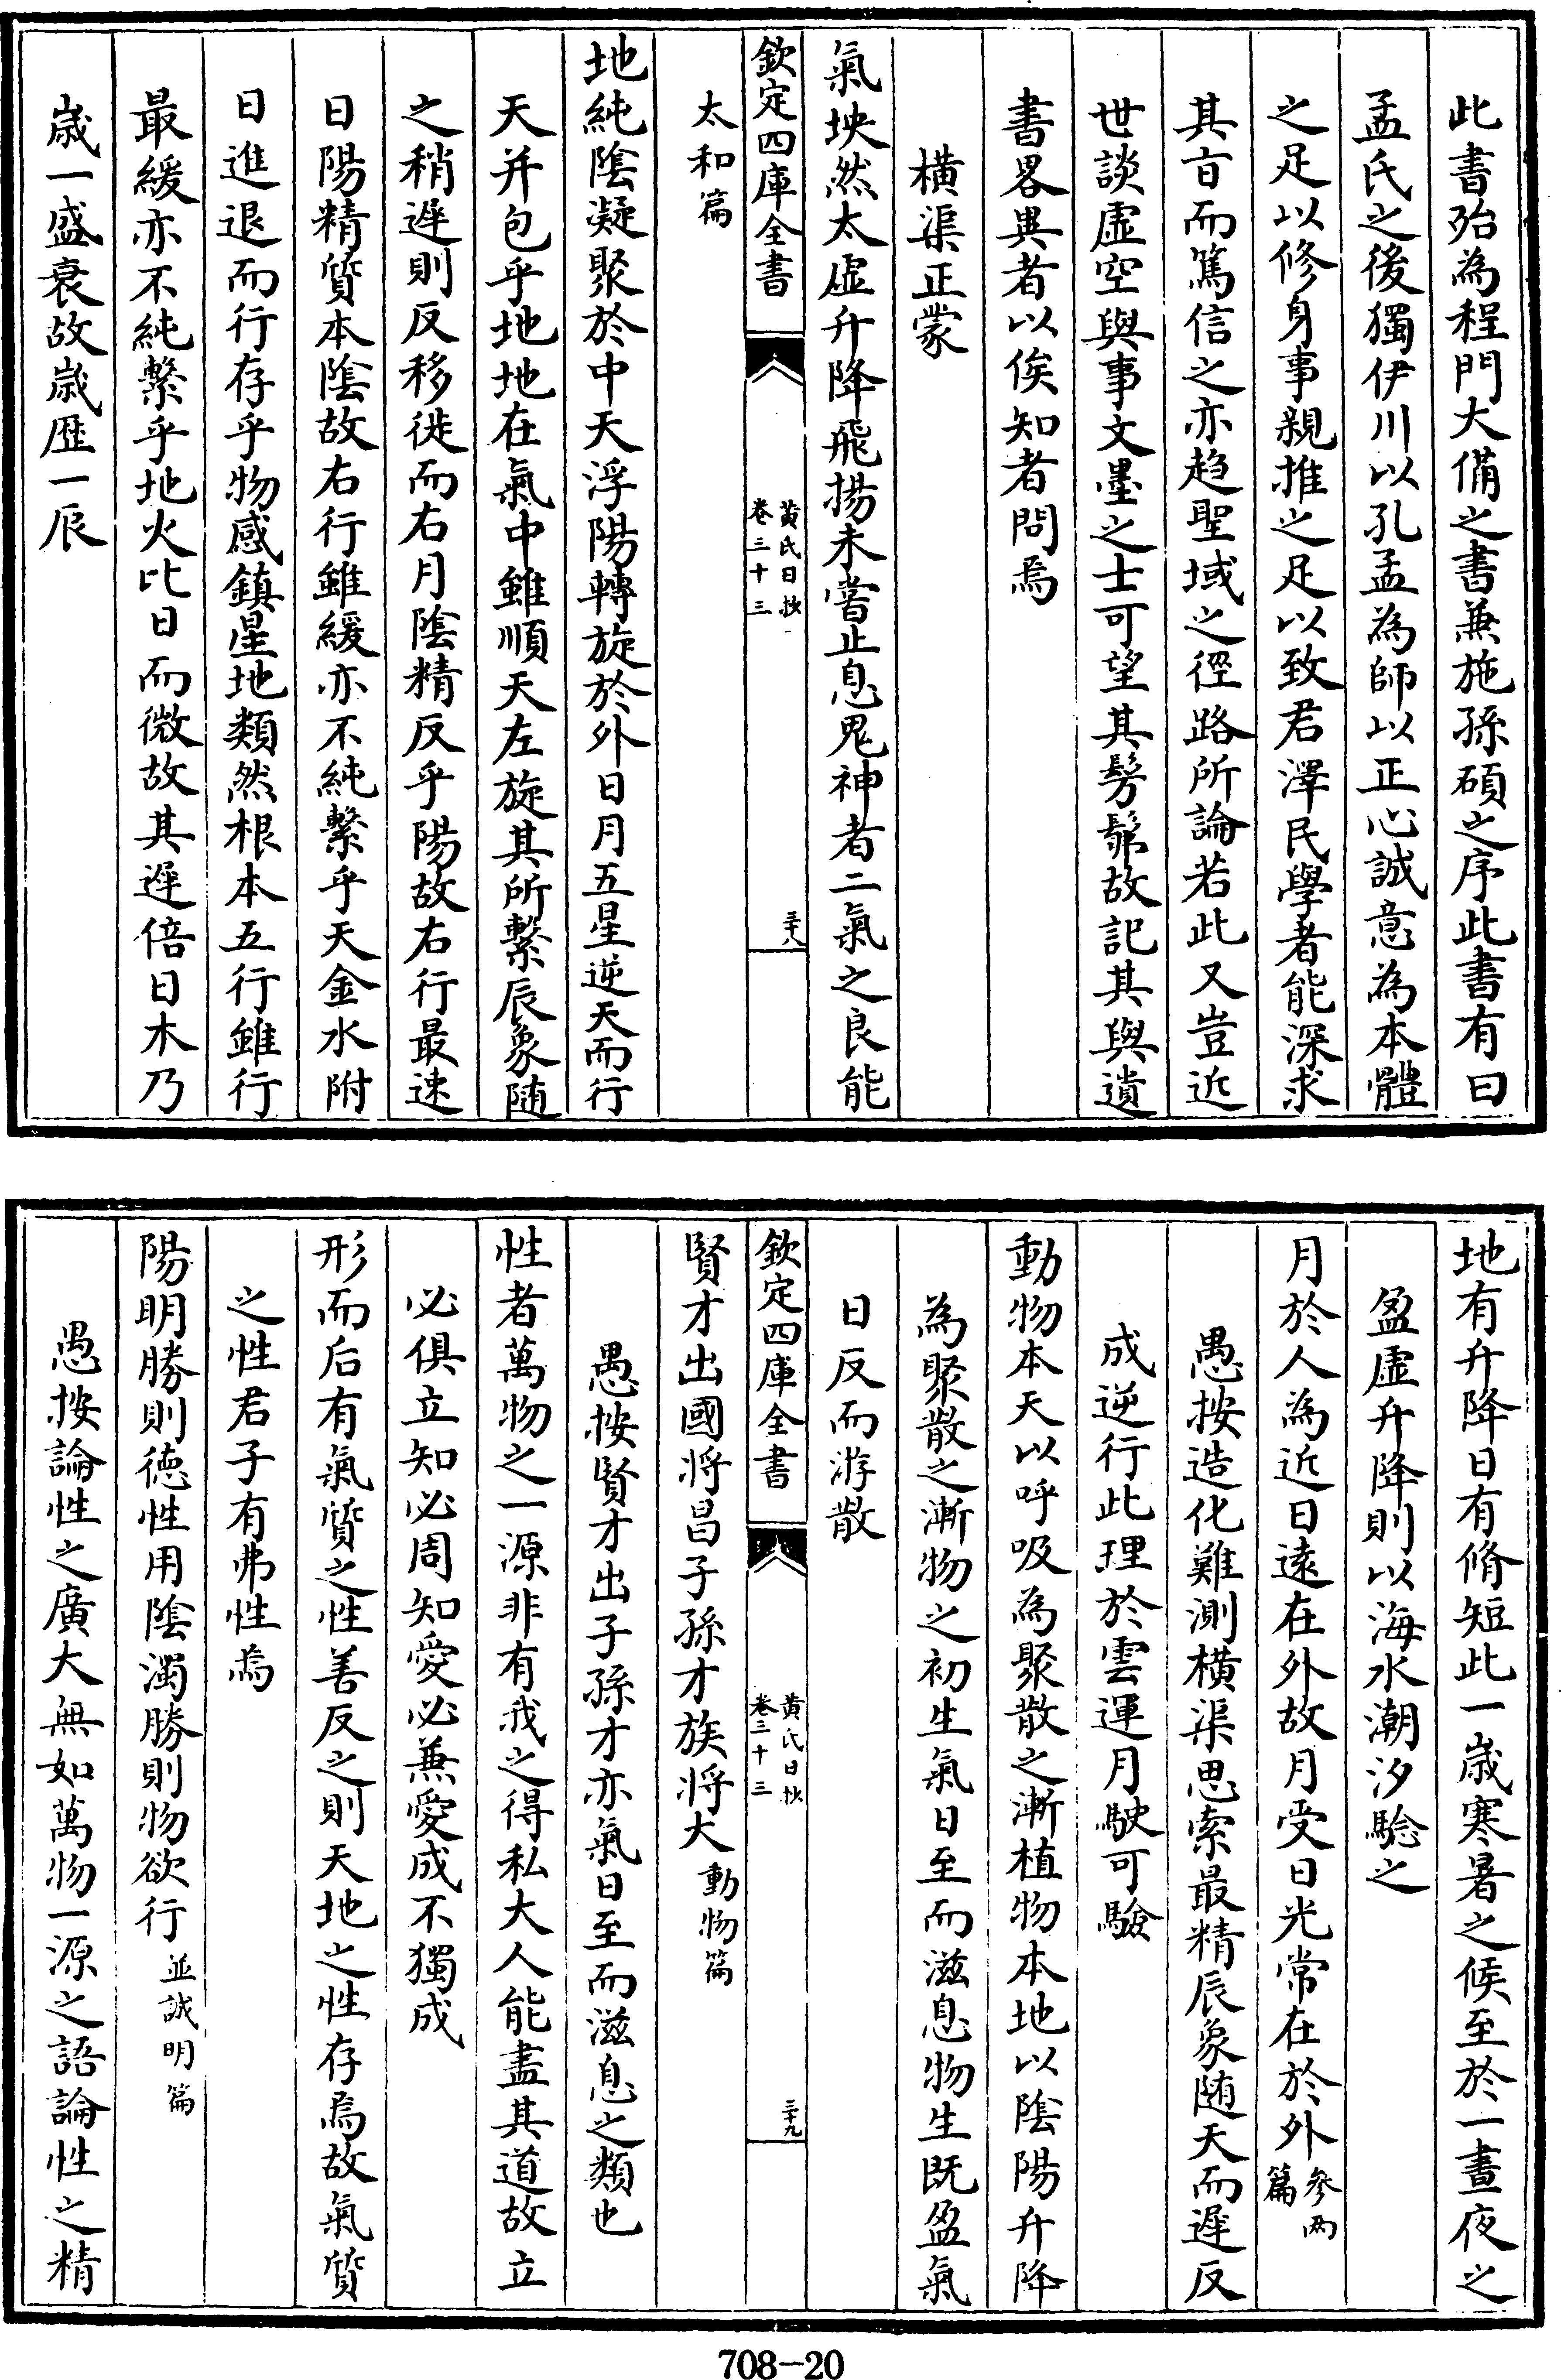 此書殆為程門大備之書兼施孫碩之序此書有曰
孟氏之後獨伊川以孔孟為師以正心誠意為本體
之足以修身事親推之足以致君澤民學者能深求
其㫖而篤信之亦趋聖域之徑路所論若此又豈近
世談虛空與事文墨之士可望其髣髴故記其與遺
書畧異者以俟知者問焉
橫渠正蒙
氣坱然太虛升降飛揚未嘗止息鬼神者二氣之良能
欽定四庫全書
黃氏日抄
卷三十三
三十八
太和篇
地純隂凝聚於中天浮陽轉旋於外日月五星逆天而行
天并包乎地地在氣中雖順天左旋其所繫辰象随
之稍遲則反移徙而右月隂精反乎陽故右行最速
日陽精質本隂故右行雖緩亦不純繫乎天金水附
日進退而行存乎物感鎮星地類然根本五行雖行
最緩亦不純繫乎地火比日而微故其遲倍日木乃
歲一盛衰故歲歴一辰
地有升降日有脩短此一歲寒暑之候至於一晝夜之
盈虛升降則以海水潮汐騐之
月於人為近日逺在外故月受日光常在於外參两
篇
愚按造化難測橫渠思索最精辰象随天而遲反
成逆行此理於雲運月駛可驗
動物本天以呼吸為聚散之漸植物本地以隂陽升降
為聚散之漸物之初生氣日至而滋息物生既盈氣
日反而游散
欽定四庫全書
黃氏日抄
卷三十三
三十九
賢才出國將昌子孫才族將大動物篇
愚按賢才出子孫才亦氣日至而滋息之類也
性者萬物之一源非有我之得私大人能盡其道故立
必俱立知必周知愛必兼愛成不獨成
形而后有氣質之性善反之則天地之性存焉故氣質
之性君子有弗性焉
陽明勝則徳性用隂濁勝則物欲行並誠明篇
愚按論性之廣大無如萬物一源之語論性之精
708-20